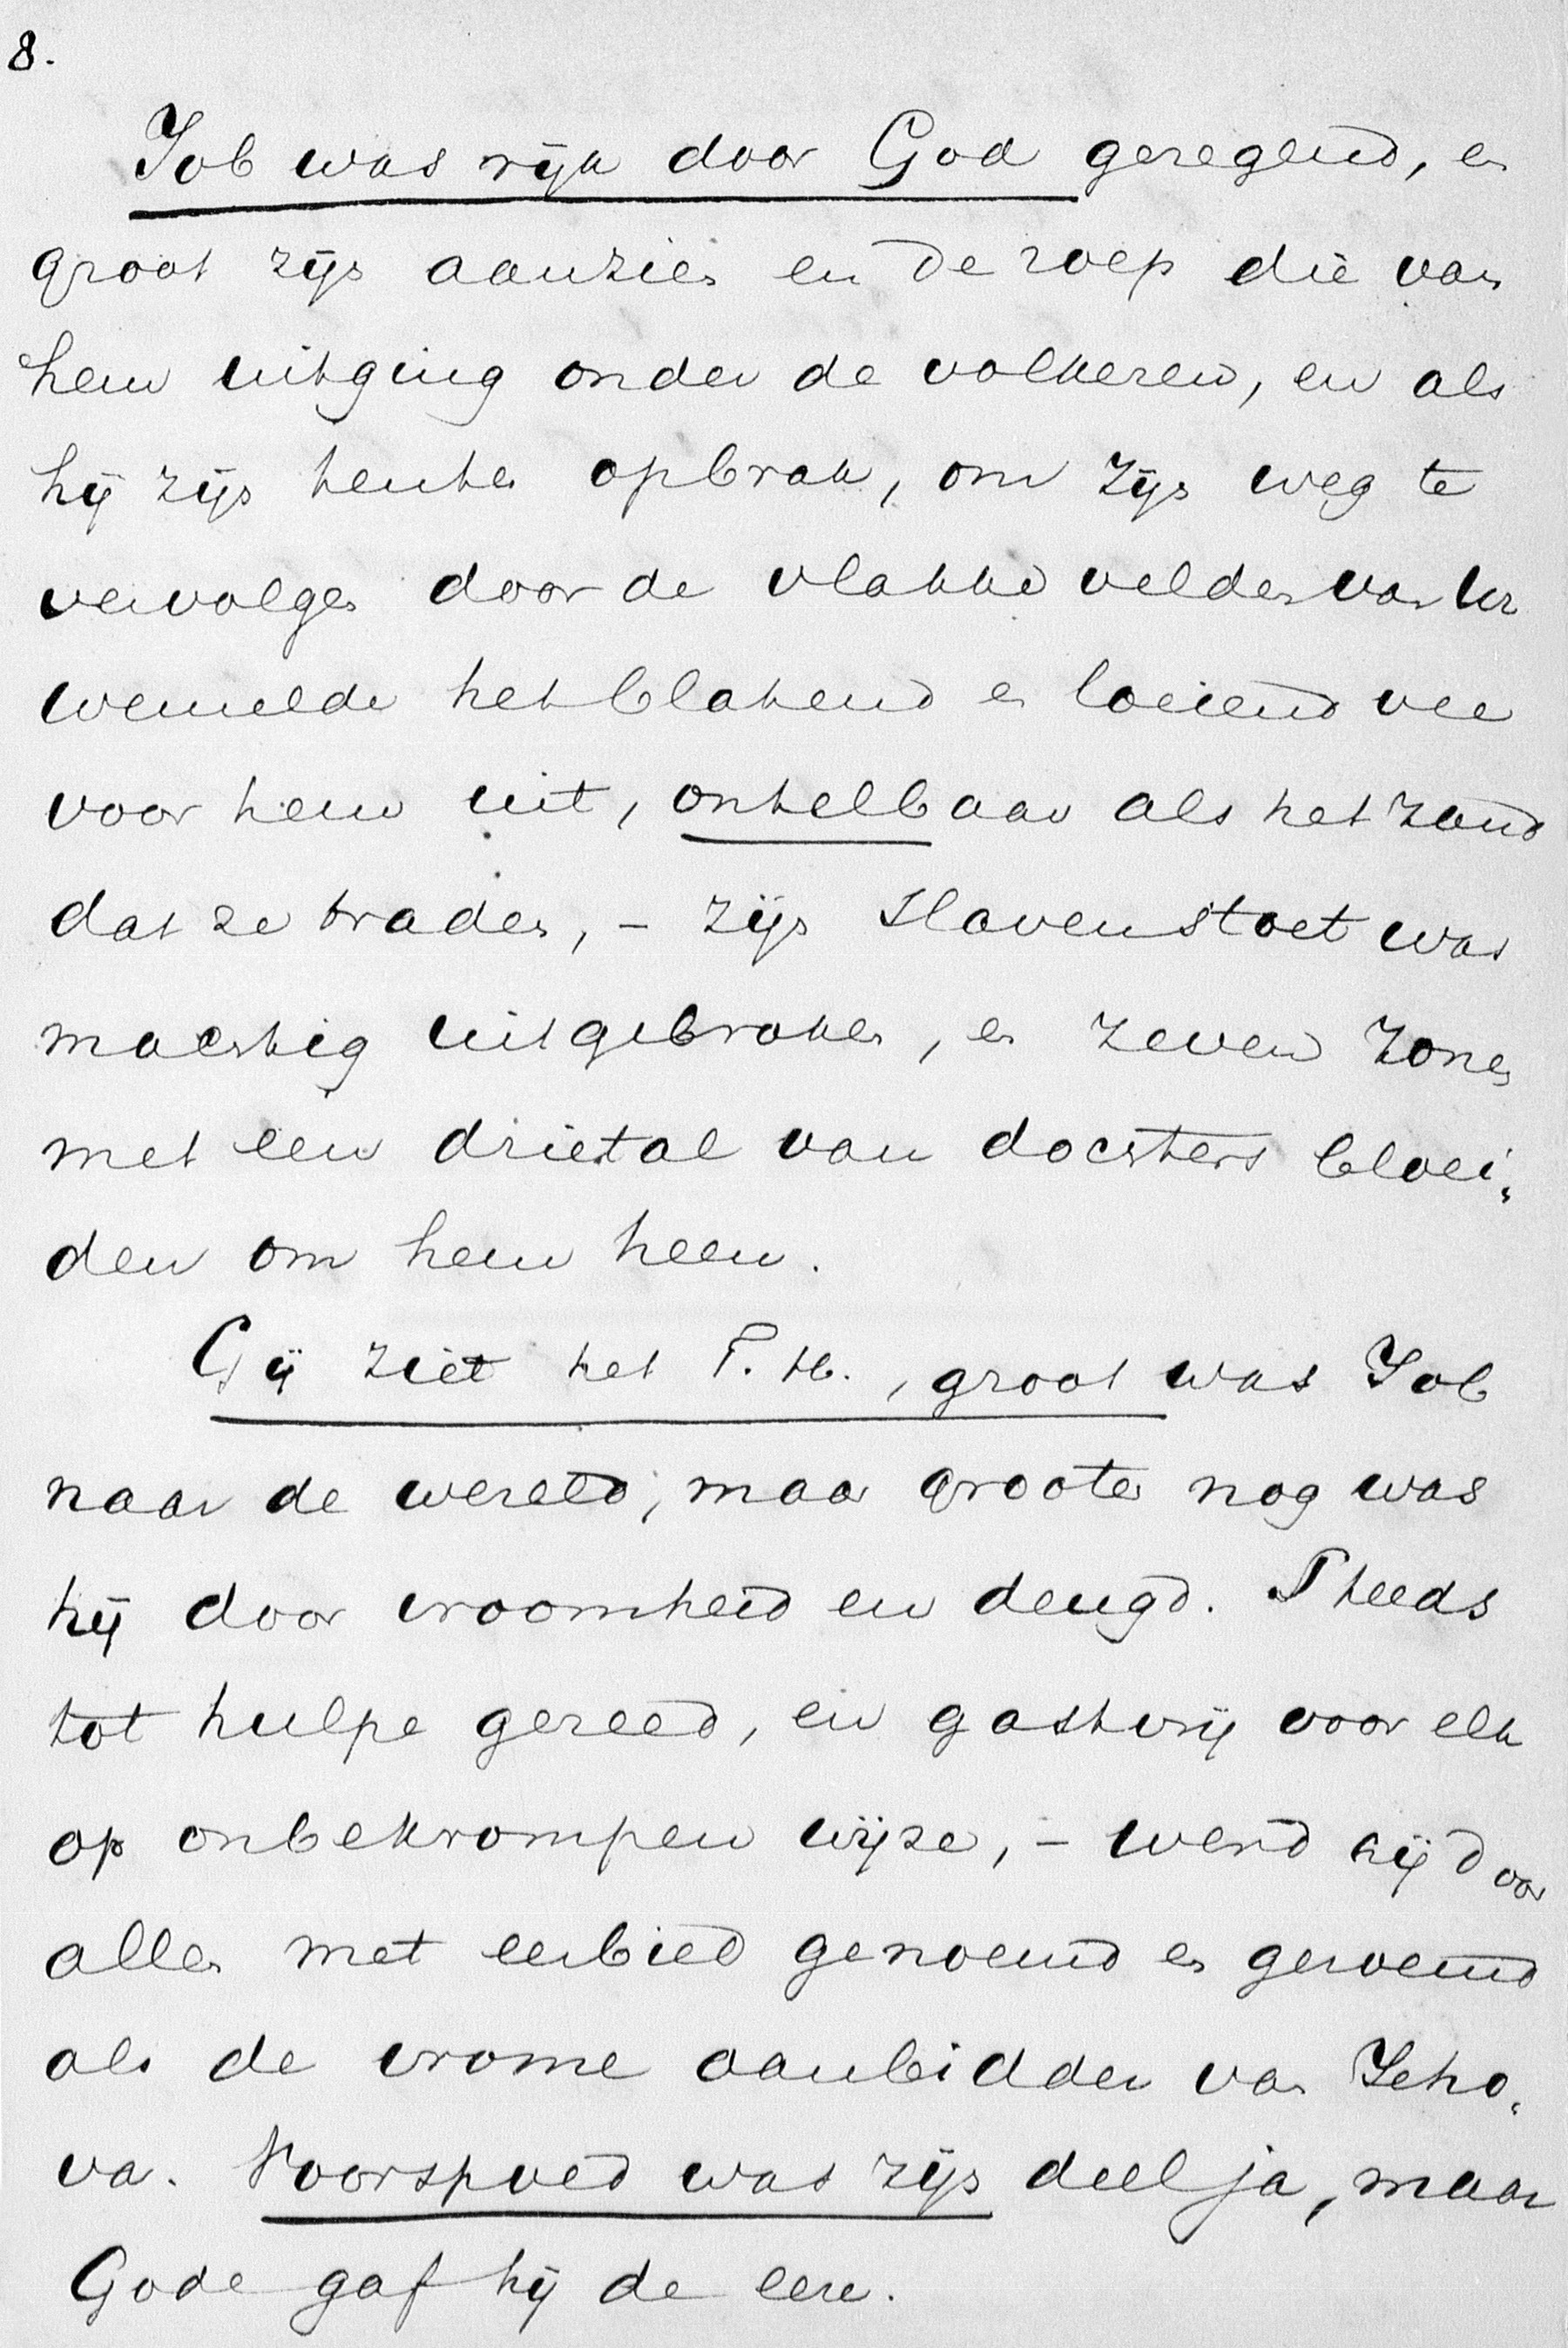 8.
Job was rijk door God gezegend, en
groot zijn aanzien en de roep die van
hem uitging onder de volkeren, en als
hij zijn tenten opbrak, om zijn weg te
vervolgen door de vlakke velden van Ur
wemelde het blatend en loeiend vee
voor hem uit, ontelbaar als het zand
dat ze traden, – zijn slavenstoet was
machtig uitgebroken, en zeven zonen
met een drietal van dochters bloei-
den om hem heen.
Gij ziet het T. H., groot was Job
naar de wereld, maar grooter nog was
hij door vroomheid en deugd. Steeds
tot hulpe gereed, en gastvrij voor elk
op onbekrompen wijze, – werd hij door
allen met eerbied genoemd en geroemd
als de vrome aanbidder van Jeho-
va. Voorspoed was zijn deel ja, maar
Gode gaf hij de eere.